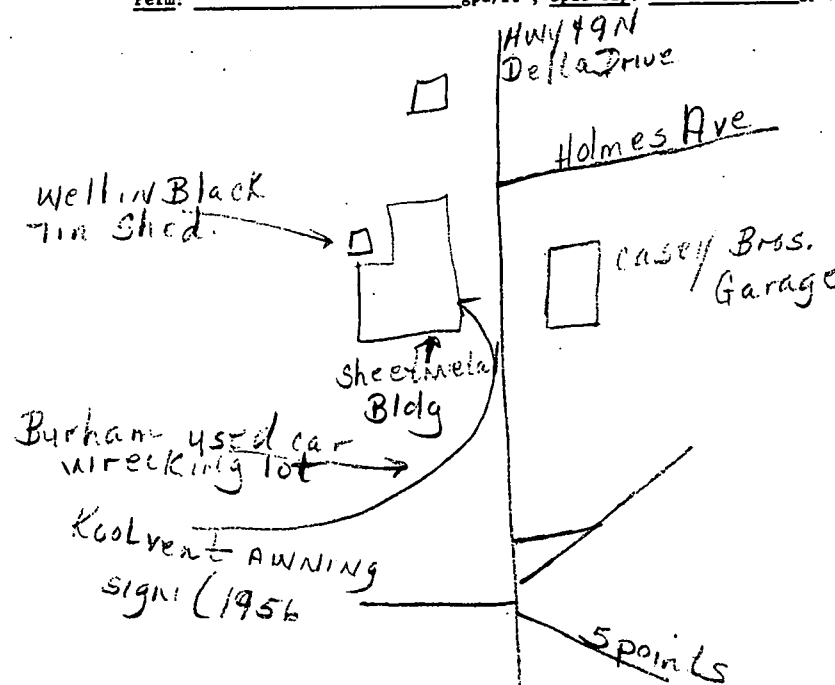 Perm:
HWY 49N
Della Drive
Holmes Ave
Well in Black
Tin Shed.
Casey Bros.
Garage
Sheetmetal
Bldg
Burham used car
wrecking lot
Koolvent AWNING
sign (1956
5 points